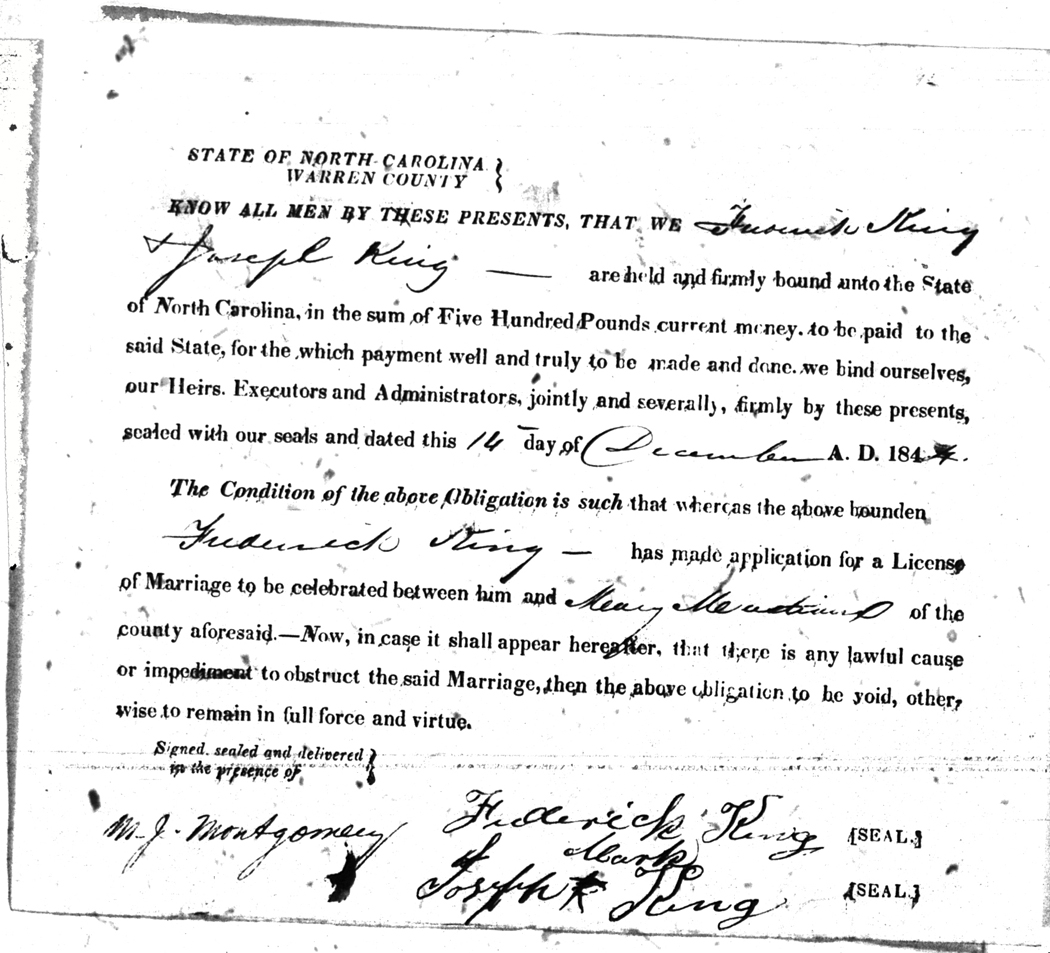 STATE OF NORTH CAROLINA
WARREN COUNTY
KNOW ALL MEN BY THESE PRESENTS, THAT WE Frederick King
& Joseph King — are held and firmly bound unto the State
of North Carolina, in the sum of Five Hundred Pounds current money, to be paid to the
said State, for the which payment well and truly to be made and done. we bind ourselves,
our Heirs. Executors and Administrators, jointly and severally, firmly by these presents,
sealed with our seals and dated this 14 day of December A. D. 184
The Condition of the above Obligation is such that whereas the above bounden
Frederick King — has made application for a License
of Marriage to be celebrated between him and Mary of the
county aforesaid.—Now, in case it shall appear hereafter, that there is any lawful cause
or impediment to obstruct the said Marriage, then the above obligation to be void, other,
wise to remain in full force and virtue.
Signed, sealed and delivered
in the presence of
M. J. Montgomery
Frederick King [SEAL.]
Mark
Joseph King [SEAL.]